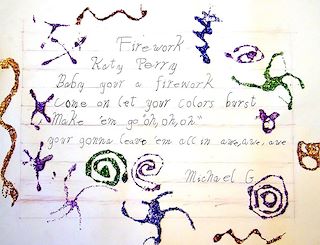 Firework
Katy Perry
Baby your a firework
come on let your colors burst
Make 'em go "oh, oh, oh"
your gonna leave 'em all in awe, awe, awe
Michael G.